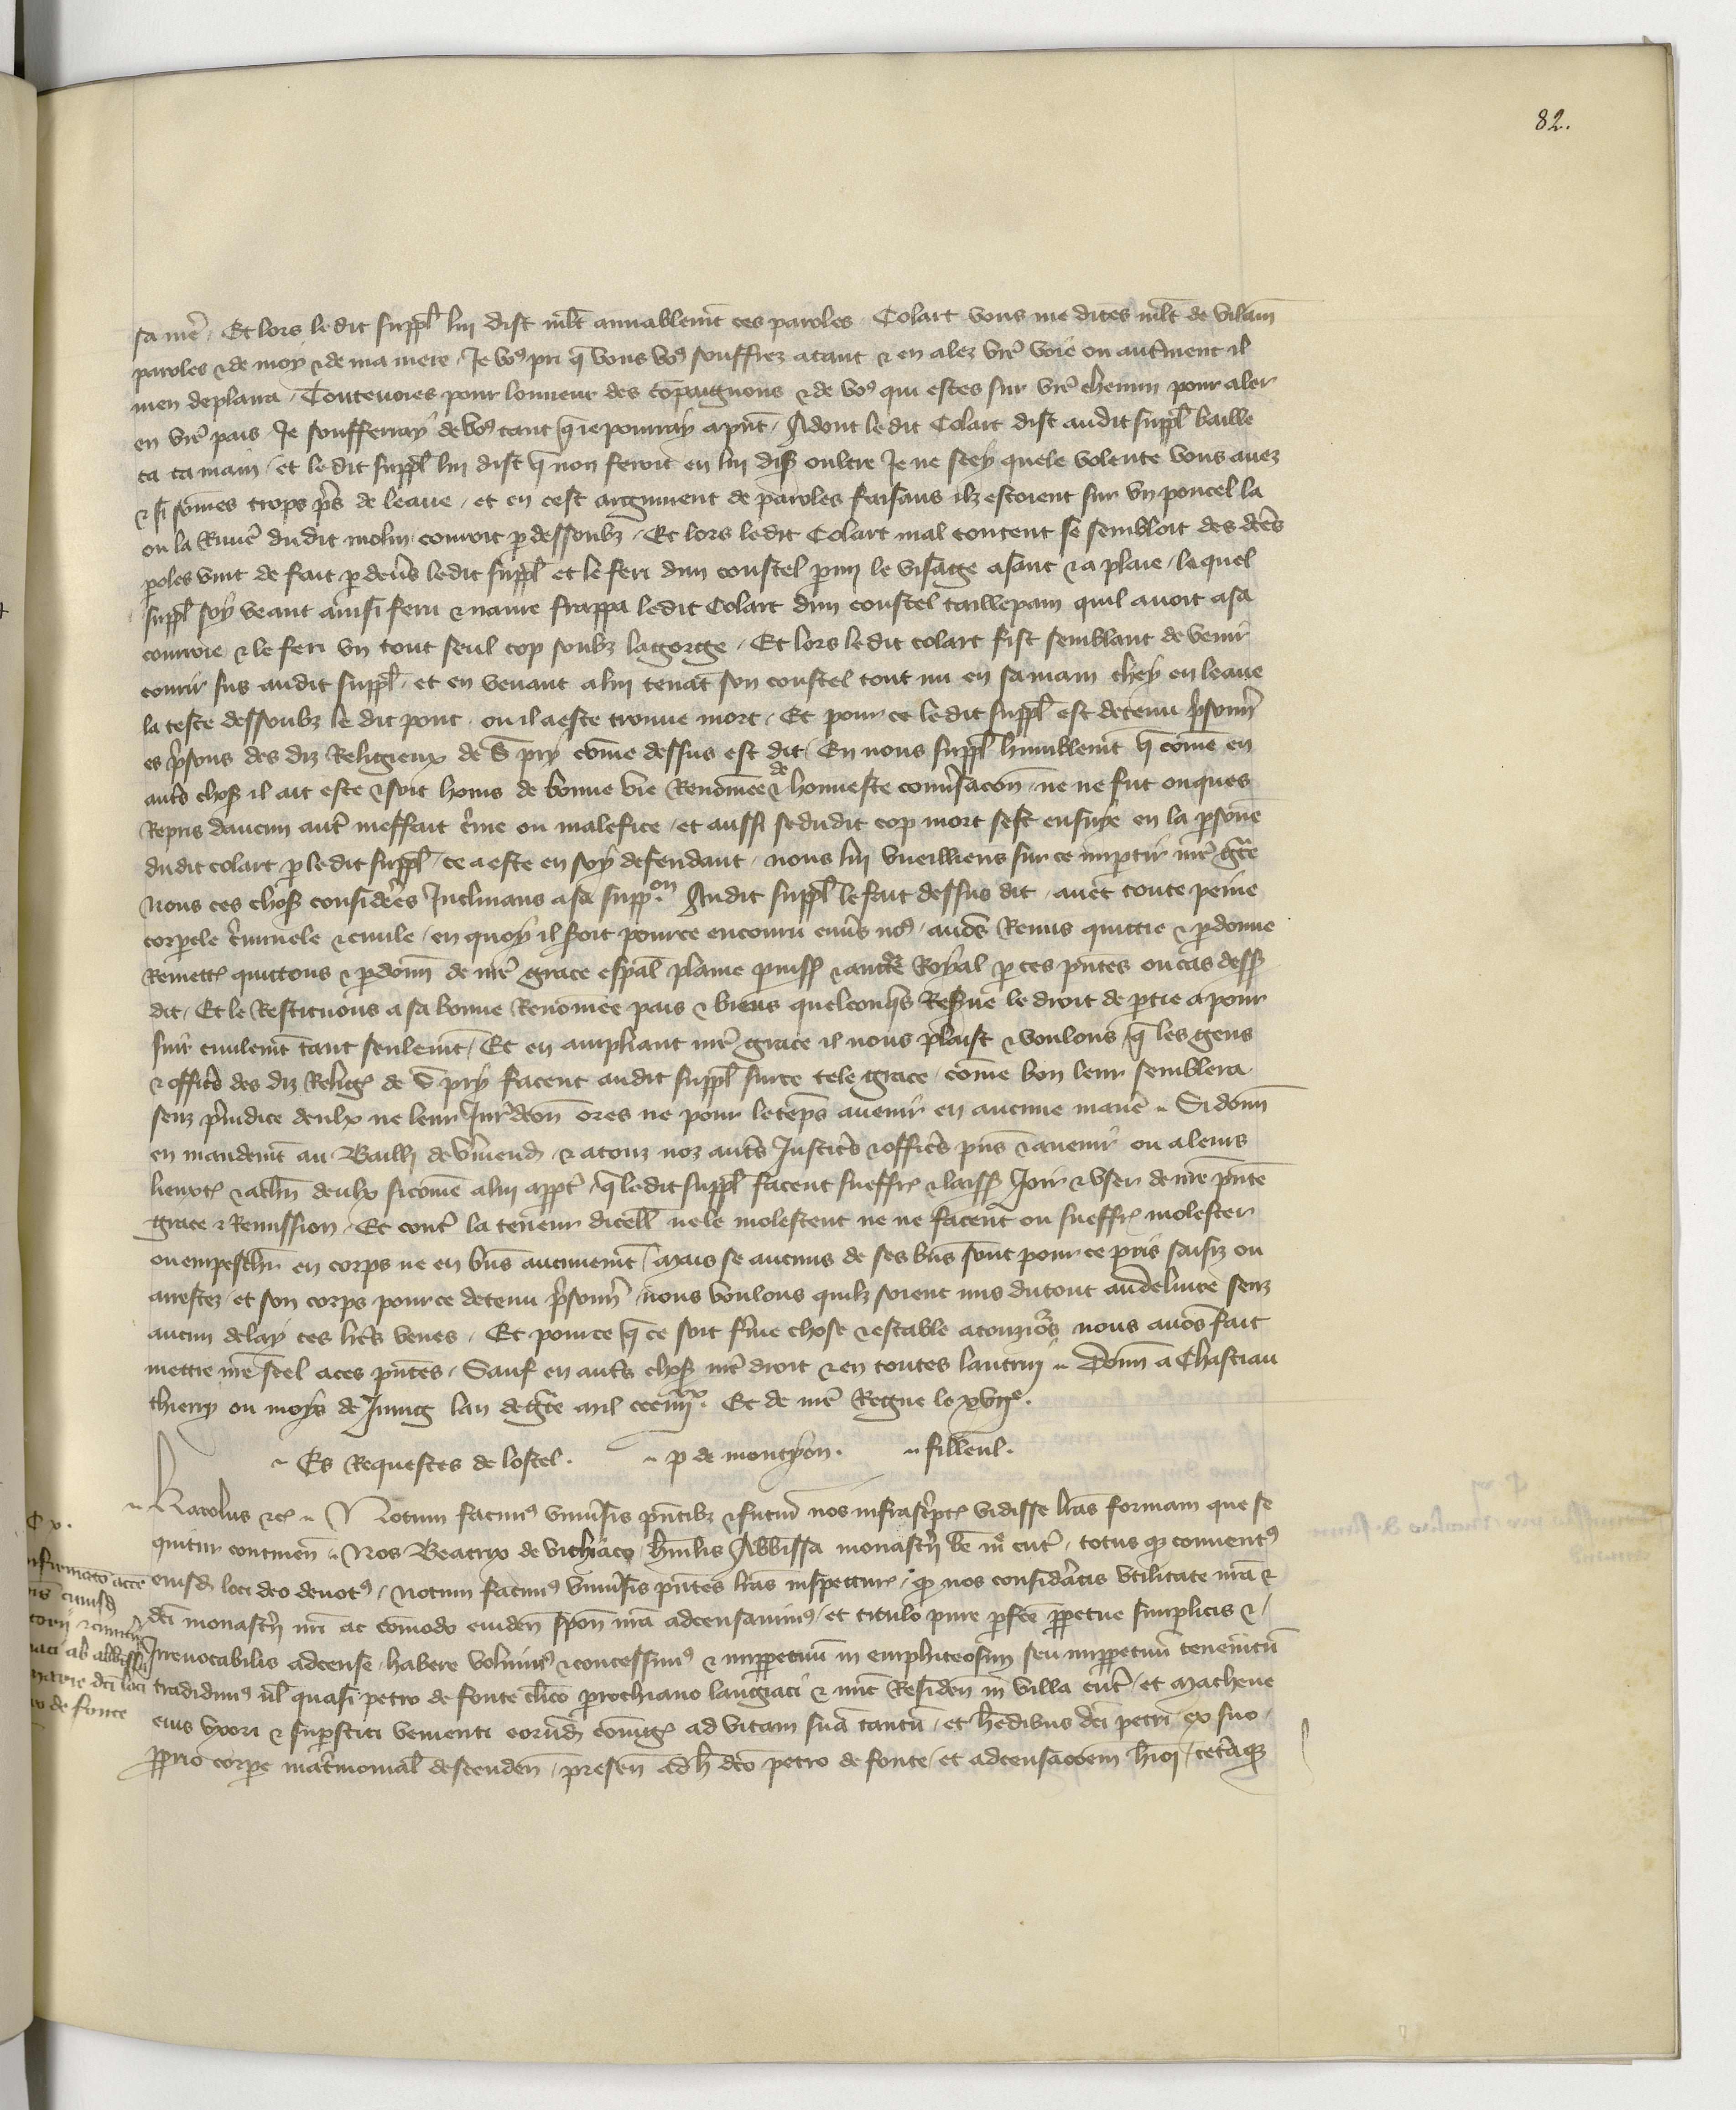 82.
sa mere. Et lors le dit suppl lui dist mlt amiablemt ces paroles. Colart vous me dites mlt de vilain
paroles & de moy & de ma mere. Je vos pri q vous vos souffrez atant & en alez vre voie ou autrement il
men deplaira. Toutevoies pour lonneur des compaignons & de vos qui estes sur vre chemin pour aler
en vre pais. Je soufferray de vos tant q ie pourray apnt. Adont le dit Colart dist audit suppl baille
ca ta main. et le dit suppl lui dist q non feroit en lui dis oultre Je ne scey quele volente vous avez
& si somes trops pres de leaue. et en cest argument de paroles faisans ilz estoient sur vn poncel la
ou la Riuiere dudit molin couroit p dessoubz. Et lors ledit Colart mal content se sembloit des dces
poles vint de fait p deuers ledit suppl et le feri dun coustel pmi le visage asanc & a plaie. lequel
suppl soy veant ainsi feru & naure frappa ledit Colart dun coustel taillepain quil auoit asa
courroie & le feri vn tout seul cop soubz lagorge. Et lors ledit colart fist semblant de venir
courir sus audit suppl. et en venant alui tenat son coustel tout nu en samain chey en leaue
la teste dessoubz le dit pont. ou il aeste trouue mort. Et pour ce ledit suppl est detenu prisonn
es prisons des diz Religieux de S pry come dessus est dit. En nous suppl humblemt q come en
autres chos il ait este & soit homs de bonne vie Renomee & de honneste conuersacon. ne ne fut onques
Repris daucun autre meffait crime ou malefice. et aussi se dudit cop mort sest ensuye en la psone
dudit colart p ledit suppl. ce a este en soy defendant. nous lui vueilliens sur ce impartir nre grace
Nous ces chos considerees Inclinans asa supp.on Audit suppl le fait dessus dit. auec toute peine
corporele criminele & ciuile. en quoy il soit pource encouru enuers nos. auons Remis quictie & pdonne
Remett quictons & pdonn de nre grace espal plaine puiss & auctte Royal p ces pntes oucas dess
dit. Et le Restituons a sa bonne Renomee pais & biens quelconqs Reserue le droit de ptie a pour
suir ciuilemt tant seulemt. Et en ampliant nre grace il nous plaist & voulons q les gens
& offics des diz Relig de S pry facent audit suppl surce tele grace. come bon leur semblera
senz preiudice deulx ne leur Juridon ores ne pour letemps auenir en aucune maniere. Si donn
en mandemt au Bailli de Vermend. & atouz noz autrs Justiciers & officrs pns & auenir ou aleurs
lieuxt & achn deulx sicome alui apptr. q ledit suppl facent sueffr & laiss Joir & vser de nre pnte
grace & Remission. Et contre la teneur dicell nele molestent ne ne facent ou sueffr molester
ouempeschr en corps ne en bns aucunemt. Mais se aucuns de ses bns sont pour ce pris saisiz ou
arrestez. et son corps pource detenu prisonn. nous voulons quilz soient mis dutout audeliure senz
aucun delay ces lres veues. Et pource q ce soit ferme chose & estable atouziors nous auons fait
mettre nre scel aces pntes. Sauf en autrs chos nre droit & en toutes lautrui. Donn a Chastiau
thierry ou moys de Juing lan degrace mil ccciiijxx. Et de nre Regne le xvije.
Es Requestes de lostel. P de montyon. filleul.
Karolus &c. Notum facimus vniuersis pntibz & futur nos infrascrptas vidisse lras formam que se
quitur continen. Nos Beatrix de vichiaco humilis Abbissa monastrij be me cutr. totus qz conuentus
eiusd loci deo deuotus. Notum facimus vniuersis pntes lras inspecturis. q nos consideratis vtilitate nra &
dci monastrij nri ac comodo euiden spon nra adcensauimus. et titulo pure pfecte ppetue simplicis &
Irreuocabilis adcense. habere volumus & concessimus & imppetuum in emphiteosim seu imppetuum tenemtum
tradidimus vl quasi petro de fonte clico prochiano langiaci & nunc Residen in villa cutr. et Matheue
eius vxori & supstiti viuenti eorund coniug ad vitam sua tantum. et heredibus dci petri ex suo
pprio corpe matrimonial descenden. presen adh dco petro de fonte. et adcensacoem hmoi. ceteraqz